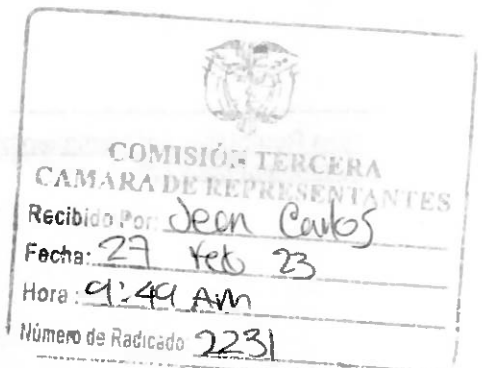 COMISIÓN TERCERA
CAMARA DE REPRESENTANTES
Recibido Por: Jean Carlos
Fecha: 27 Feb 23
Hora: 9:49 AM
Número de Radicado 2231